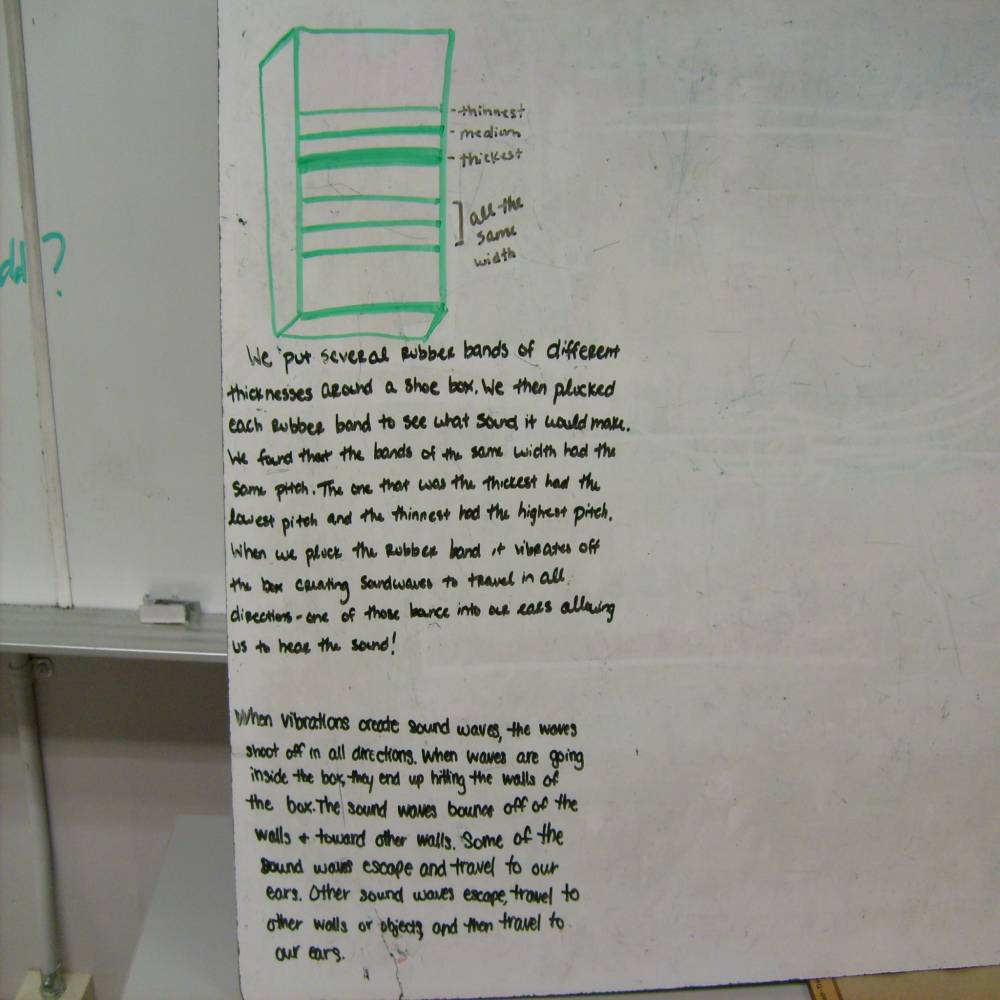 dd?
- thinnest
- medium
- thickest
] all the
same
width
We put several rubber bands of different
thicknesses around a shoe box. We then plucked
each rubber band to see what sound it would make.
We found that the bands of the same width had the
same pitch. The one that was the thickest had the
lowest pitch and the thinnest had the highest pitch.
When we pluck the rubber band it vibrates off
the box creating soundwaves to travel in all
directions - one of those bounce into our ears allowing
us to hear the sound!
When vibrations create sound waves, the waves
shoot off in all directions. When waves are going
inside the box, they end up hitting the walls of
the box. The sound waves bounce off of the
walls + toward other walls. Some of the
sound waves escape and travel to our
ears. Other sound waves escape, travel to
other walls or objects, and then travel to
our ears.